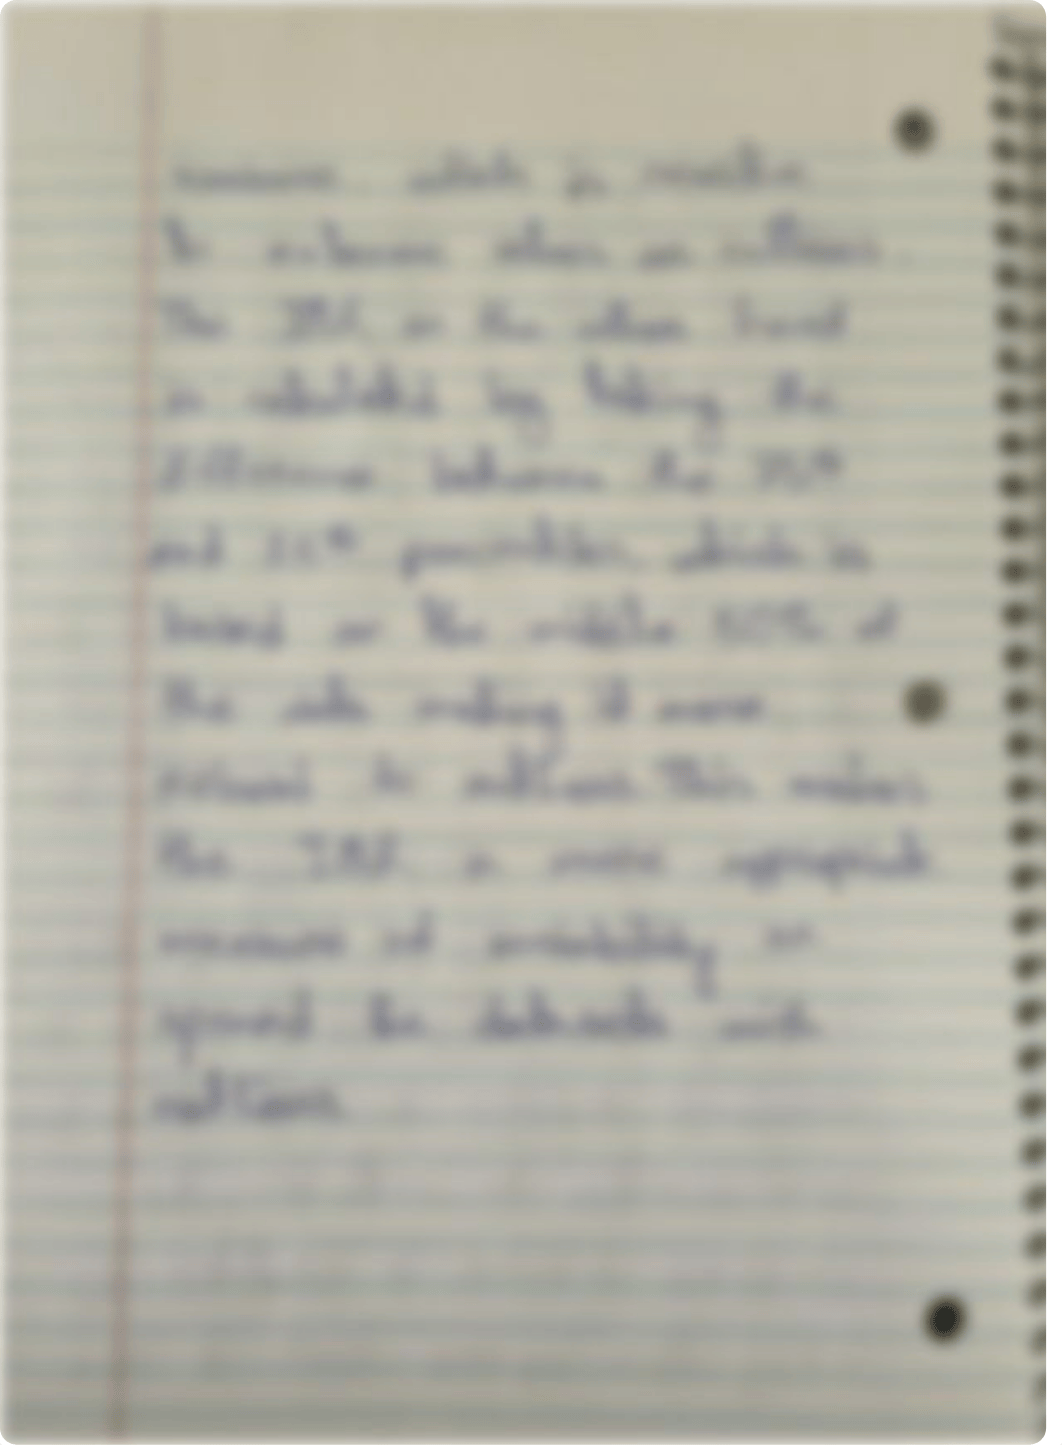 measure which is sensitive
to extreme values or outliers.
The IQR on the other hand
is calculated by taking the
difference between the 75th
and 25th percentiles, which is
based on the middle 50% of
the data making it more
to outliers. This makes
the IQR a more appropriate
measure of variability or
spread the datasets with
outliers.